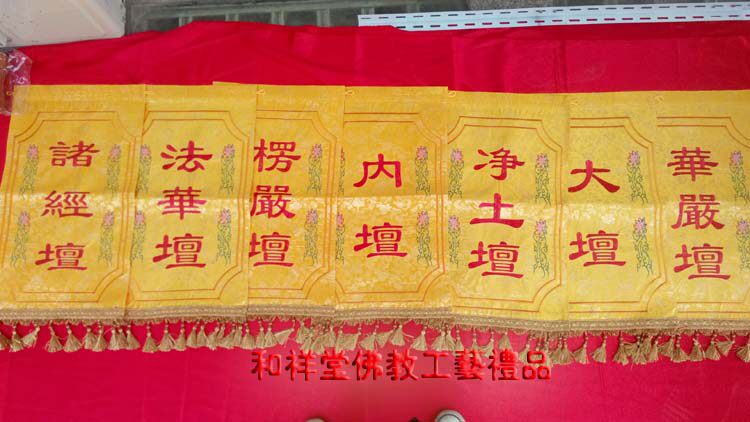 諸經壇
法華壇
楞嚴壇
内壇
净土壇
大壇
華嚴壇
和祥堂佛教工藝禮品